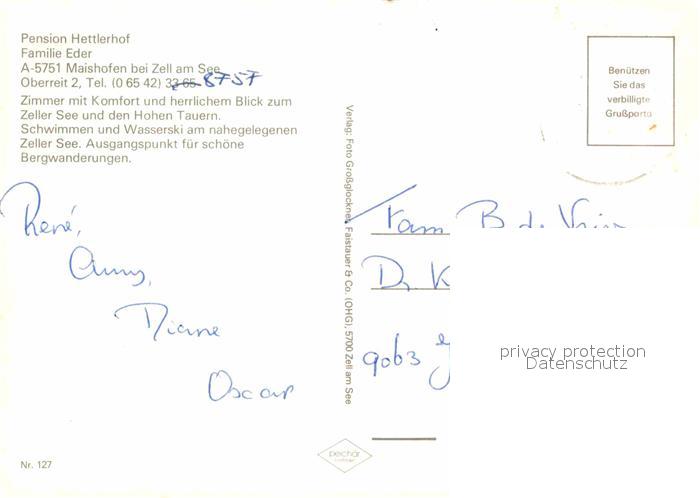 Pension Hettlerhof
Familie Eder
A-5751 Maishofen bei Zell am See
Oberreit 2, Tel. (0 65 42) 33 65 8757
Zimmer mit Komfort und herrlichem Blick zum
Zeller See und den Hohen Tauern.
Schwimmen und Wasserski am nahegelegenen
Zeller See. Ausgangspunkt für schöne
Bergwanderungen.
René,
Diane
Oscar
Nr. 127
Verlag: Foto Großglockner, Faistauer & Co. (OHG), 5700 Zell am See
pechar
Benützen
Sie das
verbilligte
Grußporto
Fam B de
D K
9063
privacy protection
Datenschutz